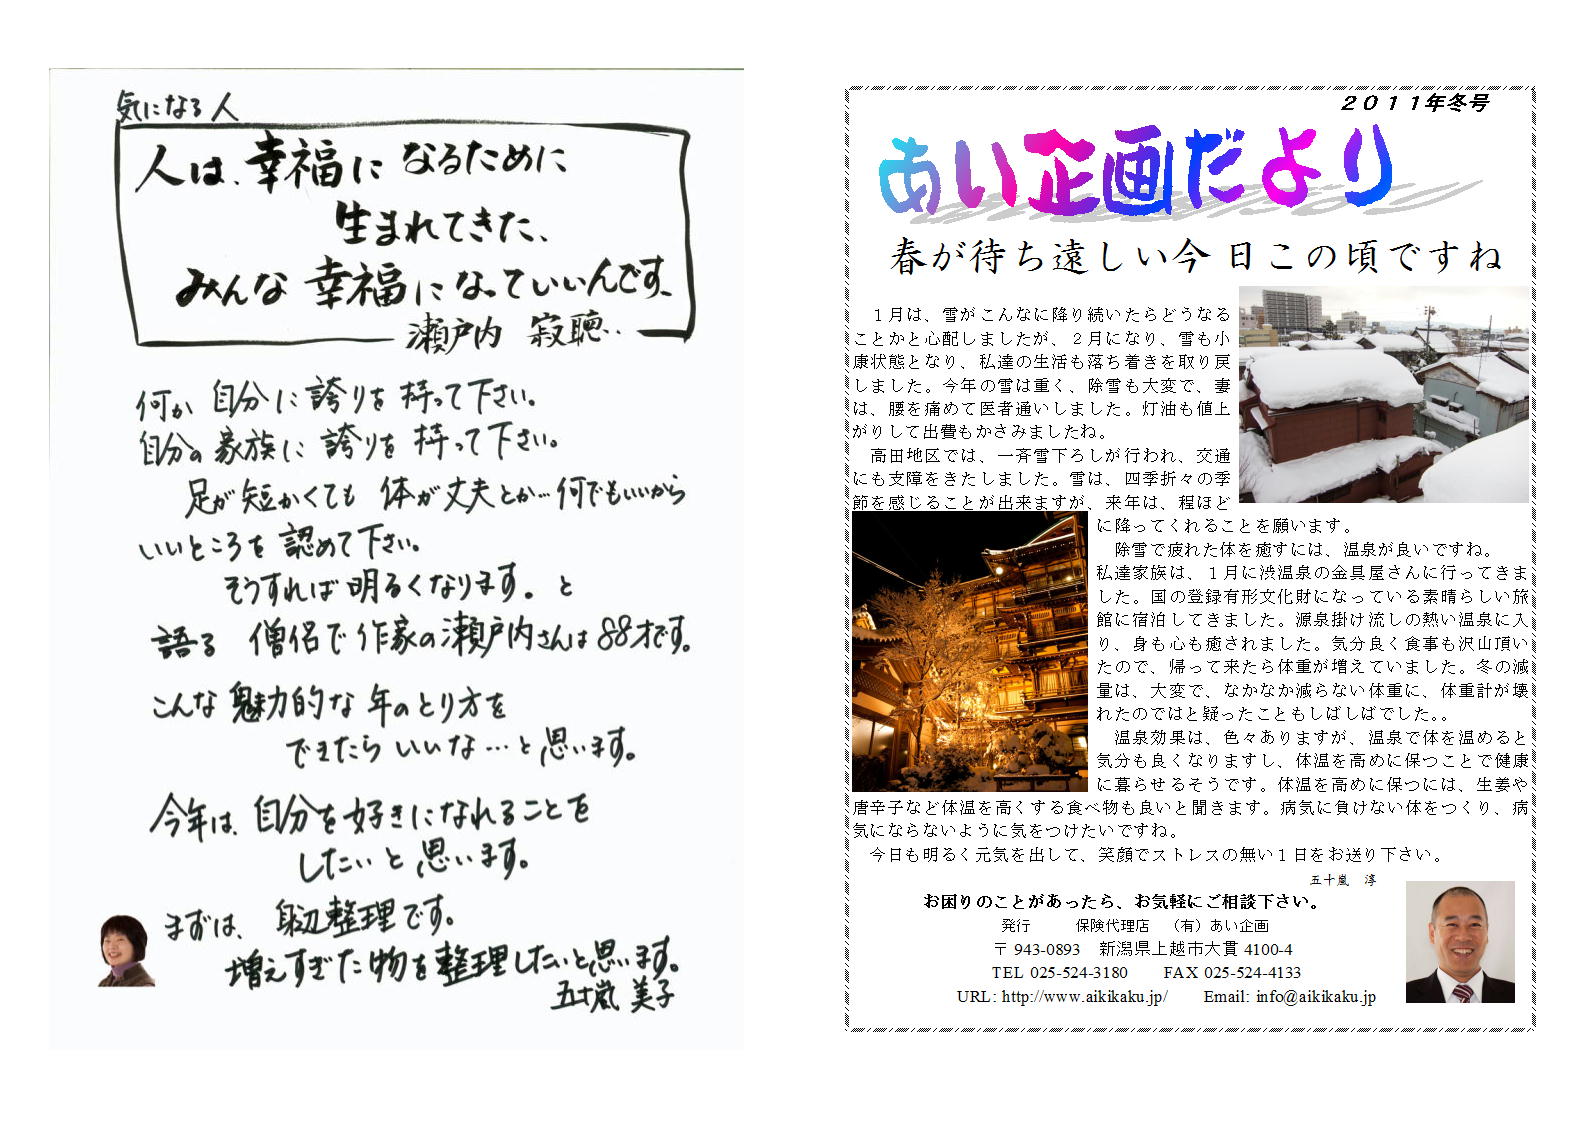 気になる人
人は、幸福に なるために
生まれてきた、
みんな 幸福になっていいんです。
瀬戸内 寂聴‥
何か 自分に誇りを 持って下さい。
自分の家族に 誇りを 持って下さい。
足が短かくても 体が丈夫とか…何でもいいから
いいところを 認めて下さい。
そうすれば明るくなります。と
語る 僧侶で作家の瀬戸内さんは88才です。
こんな魅力的な年のとり方を
できたらいいな…と思います。
今年は、自分を好きになれることを
したいと思います。
まずは、身辺整理です。
増えすぎた物を整理したいと思います。
五十嵐 美子
２０１１年冬号
あい企画だより
春が待ち遠しい今日この頃ですね
１月は、雪がこんなに降り続いたらどうなる
ことかと心配しましたが、２月になり、雪も小
康状態となり、私達の生活も落ち着きを取り戻
しました。今年の雪は重く、除雪も大変で、妻
は、腰を痛めて医者通いしました。灯油も値上
がりして出費もかさみましたね。
高田地区では、一斉雪下ろしが行われ、交通
にも支障をきたしました。雪は、四季折々の季
節を感じることが出来ますが、来年は、程ほど
に降ってくれることを願います。
除雪で疲れた体を癒すには、温泉が良いですね。
私達家族は、１月に渋温泉の金具屋さんに行ってきま
した。国の登録有形文化財になっている素晴らしい旅
館に宿泊してきました。源泉掛け流しの熱い温泉に入
り、身も心も癒されました。気分良く食事も沢山頂い
たので、帰って来たら体重が増えていました。冬の減
量は、大変で、なかなか減らない体重に、体重計が壊
れたのではと疑ったこともしばしばでした。。
温泉効果は、色々ありますが、温泉で体を温めると
気分も良くなりますし、体温を高めに保つことで健康
に暮らせるそうです。体温を高めに保つには、生姜や
唐辛子など体温を高くする食べ物も良いと聞きます。病気に負けない体をつくり、病
気にならないように気をつけたいですね。
今日も明るく元気を出して、笑顔でストレスの無い１日をお送り下さい。
五十嵐　淳
お困りのことがあったら、お気軽にご相談下さい。
発行　保険代理店　（有）あい企画
〒 943-0893　新潟県上越市大貫 4100-4
TEL 025-524-3180　FAX 025-524-4133
URL: http://www.aikikaku.jp/　Email: info@aikikaku.jp